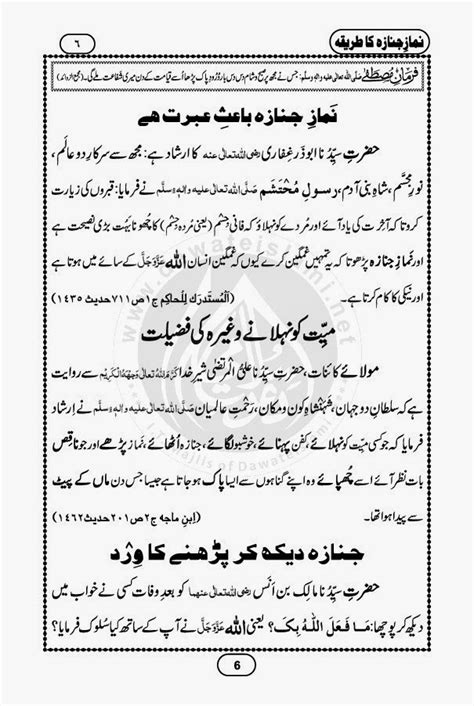 نمازِ جنازہ کا طریقہ
٦
فرمانِ مُصطَفٰے صلی اللہ تعالٰی علیہ واٰلہٖ وسلّم: جس نے مجھ پر صبح و شام دس دس بار دُرُودِ پاک پڑھا اُسے قیامت کے دن میری شفاعت ملے گی۔ (مجمع الزوائد)
نَمازِ جنازہ باعثِ عبرت ھے
حضرتِ سیِّدُنا ابو ذَر غِفاری رضی اللہ تعالٰی عنہ کا ارشاد ہے: مجھ سے سرکارِ دو عالم،
نورِ مجسَّم، شاہِ بنی آدم، رسولِ مُحتَشَم صَلَّی اللہُ تعالٰی علیہ واٰلہٖ وسلَّم نے فرمایا: قبروں کی زیارت
کرو تاکہ آخِرت کی یاد آئے اور مُردے کو نہلاؤ کہ فانی جِسْم (یعنی مُردہ جِسْم) کا چُھونا بَہُت بڑی نصیحت ہے
اور نَمازِ جنازہ پڑھو تاکہ یہ تمہیں غمگین کرے کیوں کہ غمگین انسان اللہ عَزَّوَجَلَّ کے سائے میں ہوتا ہے
اور نیکی کا کام کرتا ہے۔ (اَلْمُستَدرَک لِلْحاکِم ج١ص٧١١حدیث ١٤٣٥)
میِّت کو نہلانے وغیرہ کی فضیلت
مولائے کائنات، حضرتِ سیِّدُنا علیُّ الْمُرتَضٰی شیرِ خدا کَرَّمَ اللہُ تعالٰی وَجْہَہُ الْکَرِیْم سے روایت
ہے کہ سلطانِ دو جہان، شَہَنْشاہِ کون و مکان، رَحْمتِ عالمیان صَلَّی اللہُ تعالٰی علیہ واٰلہٖ وسلَّم نے ارشاد
فرمایا کہ جو کسی میِّت کو نہلائے، کفن پہنائے، خوشبو لگائے، جنازہ اُٹھائے، نَماز پڑھے اور جو ناقِص
بات نظر آئے اسے چُھپائے وہ اپنے گناہوں سے ایسا پاک ہو جاتا ہے جیسا جس دن ماں کے پیٹ
سے پیدا ہوا تھا۔ (ابنِ ماجہ ج٢ص٢٠١حدیث١٤٦٢)
جنازہ دیکھ کر پڑھنے کا وِرْد
حضرتِ سیِّدُنا مالِک بن اَنَس رضی اللہ تعالٰی عنہما کو بعدِ وفات کسی نے خواب میں
دیکھ کر پوچھا: مَا فَعَلَ اللہُ بِکَ؟ یعنی اللہ عَزَّوَجَلَّ نے آپ کے ساتھ کیا سُلوک فرمایا؟
6